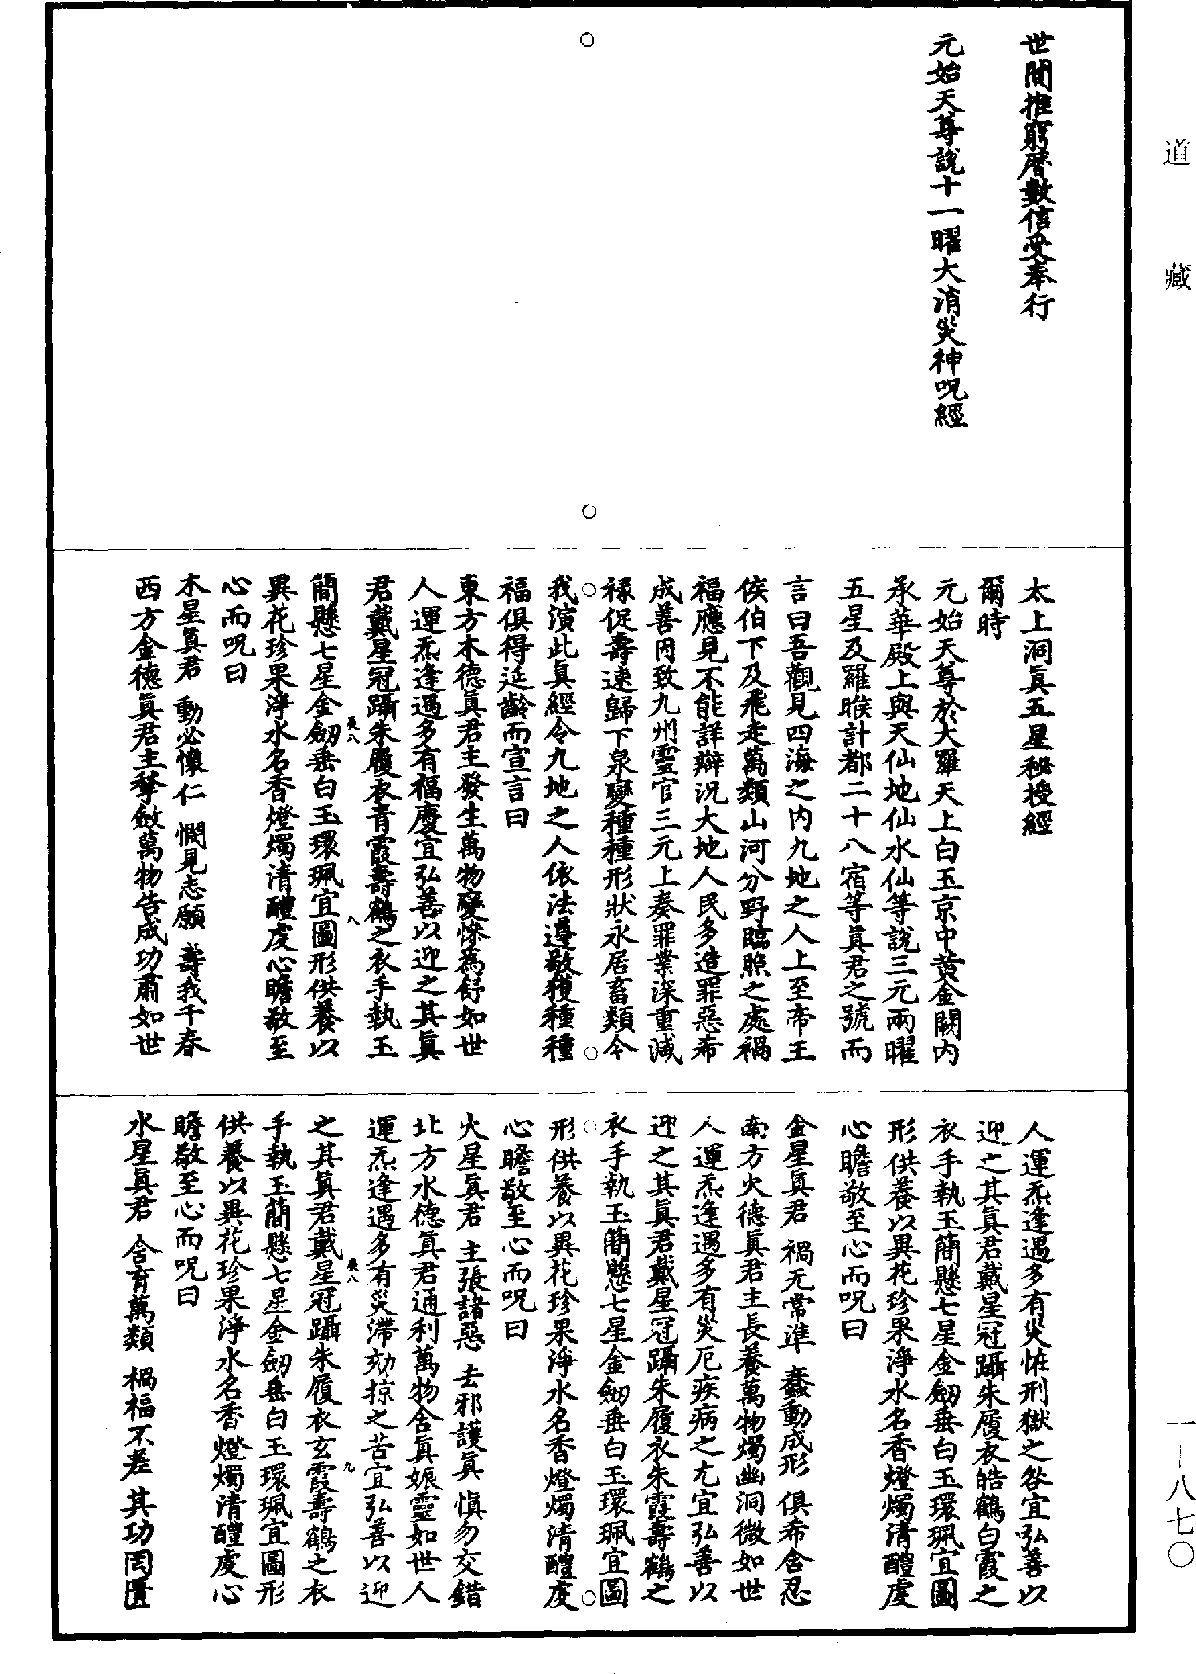 道藏
世間推窮曆數信受奉行
元始天尊說十一曜大消災神呪經
太上洞真五星秘授經
爾時
元始天尊於大羅天上白玉京中黃金闕內
承華殿上與天仙地仙水仙等說三元兩曜
五星及羅睺計都二十八宿等真君之號而
言曰吾觀見四海之內九地之人上至帝王
侯伯下及飛走萬類山河分野臨照之處禍
福應見不能詳辯況大地人民多造罪惡希
成善因致九州靈官三元上奏罪業深重減
祿促壽速歸下泉變種種形狀永居畜類今
我演此真經令九地之人依法遵敬獲種種
福俱得延齡而宣言曰
東方木德真君主發生萬物變慘為舒如世
人運炁逢遇多有福慶宜弘善以迎之其真
君戴星冠躡朱履衣青霞壽鶴之衣手執玉
簡懸七星金劒垂白玉環珮宜圖形供養以
異花珍果淨水名香燈燭清醴虔心瞻敬至
心而呪曰
木星真君 動必懷仁 憫見志願 壽我千春
西方金德真君主孳斂萬物告成功肅如世
人運炁逢遇多有災怪刑獄之咎宜弘善以
迎之其真君戴星冠躡朱履衣皓鶴白霞之
衣手執玉簡懸七星金劒垂白玉環珮宜圖
形供養以異花珍果淨水名香燈燭清醴虔
心瞻敬至心而呪曰
金星真君 禍无常準 蠢動成形 俱希含忍
南方火德真君主長養萬物燭幽洞微如世
人運炁逢遇多有災厄疾病之尤宜弘善以
迎之其真君戴星冠躡朱履衣朱霞壽鶴之
衣手執玉簡懸七星金劒垂白玉環珮宜圖
形供養以異花珍果淨水名香燈燭清醴虔
心瞻敬至心而呪曰
火星真君 主張諸惡 去邪護真 慎勿交錯
北方水德真君通利萬物含真娠靈如世人
運炁逢遇多有災滯劾掠之苦宜弘善以迎
之其真君戴星冠躡朱履衣玄霞壽鶴之衣
手執玉簡懸七星金劒垂白玉環珮宜圖形
供養以異花珍果淨水名香燈燭清醴虔心
瞻敬至心而呪曰
水星真君 含育萬類 禍福不差 其功罔匱
一–八七〇